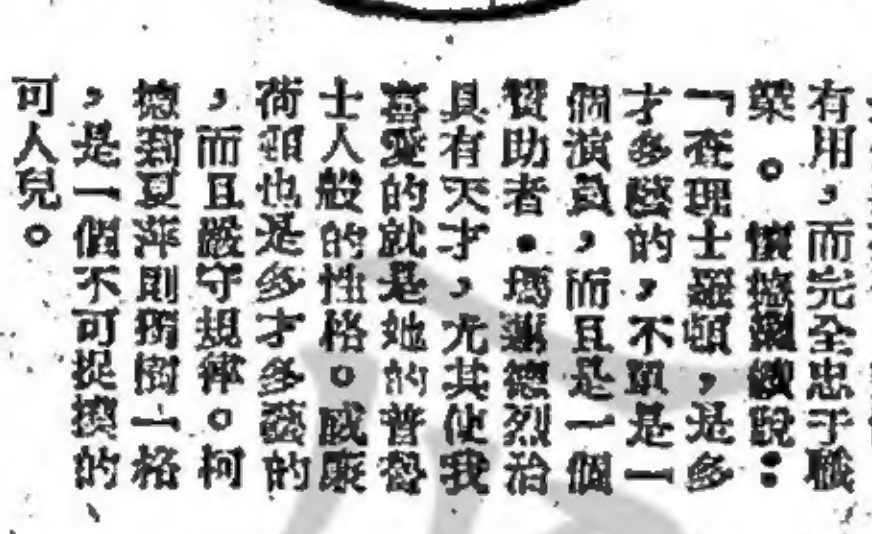 有用,而完全忠于職
業。懷續說:
「查理士羅頓,是多
才多藝的,不單是一
個演員,而且是一個
贊助者・瑪德烈治
具有天才,尤其使我
喜愛的就是她的普魯
士人般的性格。威廉
荷頓也是多才多藝的
,而且嚴守規律。柯
德莉夏萍則獨樹一格
,是一個不可捉摸的
可人兒。